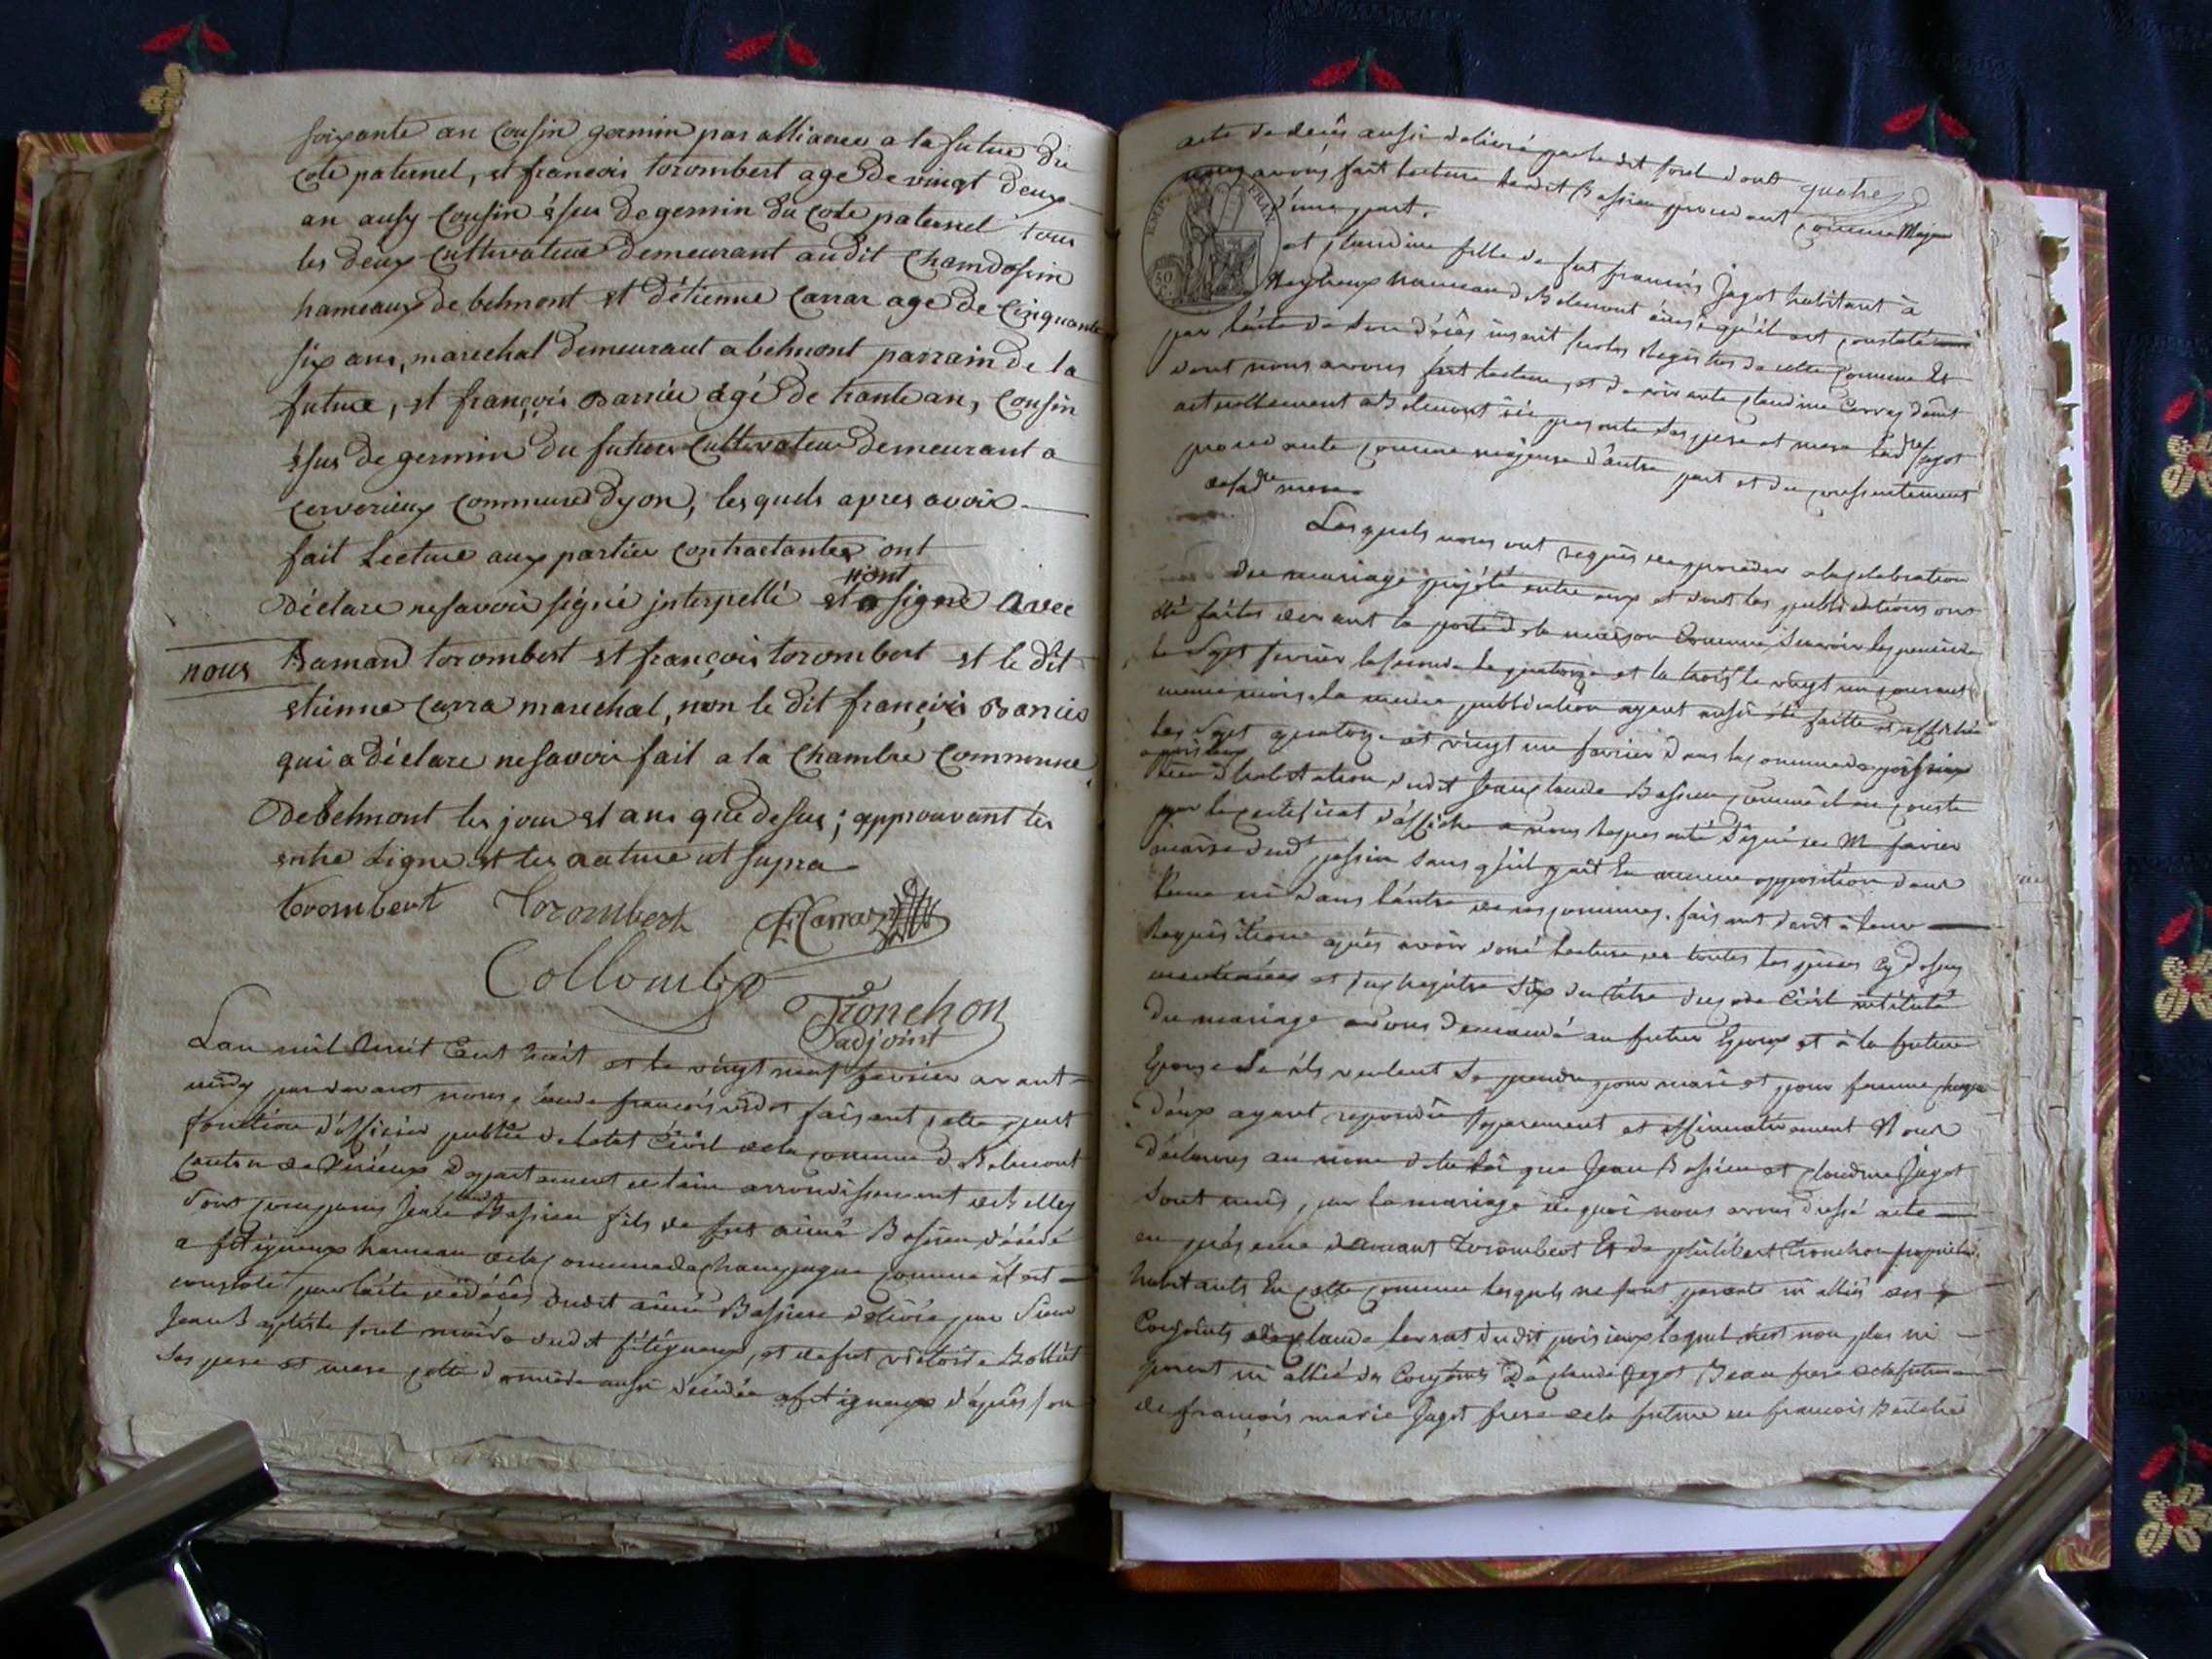 soixante an cousin germin par alliance a la future du
coté paternel, et françois torombert agé de vingt deux
an ausy cousin issu de germin du coté paternel tous
les deux cultivateur demeurant audit Chamdossin
hameaux de belmont et d'étienne Carrar agé de Cinquante
six ans, marechal demeurant a belmont parrain de la
future, et françois agé de trante an, Cousin
issus de germin du future Cultivateur demeurant a
cerverieux commune dyon, lesquels apres avoir
fait Lecture aux partier contractantes ont
déclare ne savoir signé interpellé et signé avec
nont
nous
aman torombert et françois torombert et le dit
etienne Carra marechal, non le dit françois
qui a déclare ne savoir fait a la Chambre Commune
de belmont les jour et ans que desus ; approuvant les
entre Ligne et les rature ut supra
torombert Torombert Carrar
Collomb
Tronchon
adjoint
Lan mil huit Cent huit et le vingt neuf fevrier avant
midy par devant nous Claude françois faisant cette part
fonction d'officier public de letat Civil de la commune d Belmont
canton de Virieux Departement de lain arrondissement de Belley
Sont comparus Jean Claude Bassieu fils de feu aimé Bassieu décédé
a fitigneux hameau de la commune de Champagne comme il est
constaté par lacte de décés dudit aimé Bassieu délivré par Sieur
Jean Baptiste foret maire dudit fitigneux, et de feu victoire Bolliet
ses pere et mere cette derniere aussi décédée a fitigneux d'après son
acte de décés aussi délivré par le dit foret dont
quatre
nous avons fait lecture ledit Bassieu procedant comme Majeur
d'une part.
EMP. FRAN.
50
et Claudine fille de feu francois Jagot habitant à
hameau d Belmont ainsi qu'il est constaté
par lácte de son décés inscrit sur les Registres de cette Commune Et
dont nous avons fait lecture, et de vivante Claudine Carraz
actuellement a Belmont ici presente ses pere et mere lad Jagot
procedante comme majeure d'autre part et du consentement
de sad mere.
Lesquels nous ont requis de proceder a la célebration
du mariage projété entre eux et dont les publications ont
été faites devant la porte de la maison Commune Savoir la premiere
le Sept fevrier la seconde le quatorze et la trois le vingt un courant
meme mois, la meme publication ayant aussi été faitte et affichée
les Sept quatorze et vingt un fevrier dans la commune de
lieu d'habitation dudit Jean Claude Bassieu comme il en conste
par le certificat d'affiche a nous representé Signé de M favier
maire dud sans qu'il y ait Eu aucune opposition dans
l'une ni dans l'autre de ces communes. faisant droit à leur
Requisition après avoir doné lecture de toutes les pieces Cy dessus
mentionées et du chapitre Six du titre du code Civil intitulé
Du mariage avons Demandé au futur Epoux et à la future
Epouse Se ils veulent Se prendre pour mari et pour femme chacun
d'eux ayant repondu Separement et affirmativement Nous
déclarons au nom de la loi que Jean Bassieu et Claudine Jagot
Sont unis par le mariage de quoi nous avons dressé acte
en présence d'amant Torombert Et de philibert Tronchon propriétaires
habitants En cette commune lesquels ne sont parents ni alliés des
Conjoints de Claude dudit lequel n'est non plus ni
parent ni allié des Conjoints De Claude Jagot Beau frere de la future
de françois marie Jagot frere de la future de francois